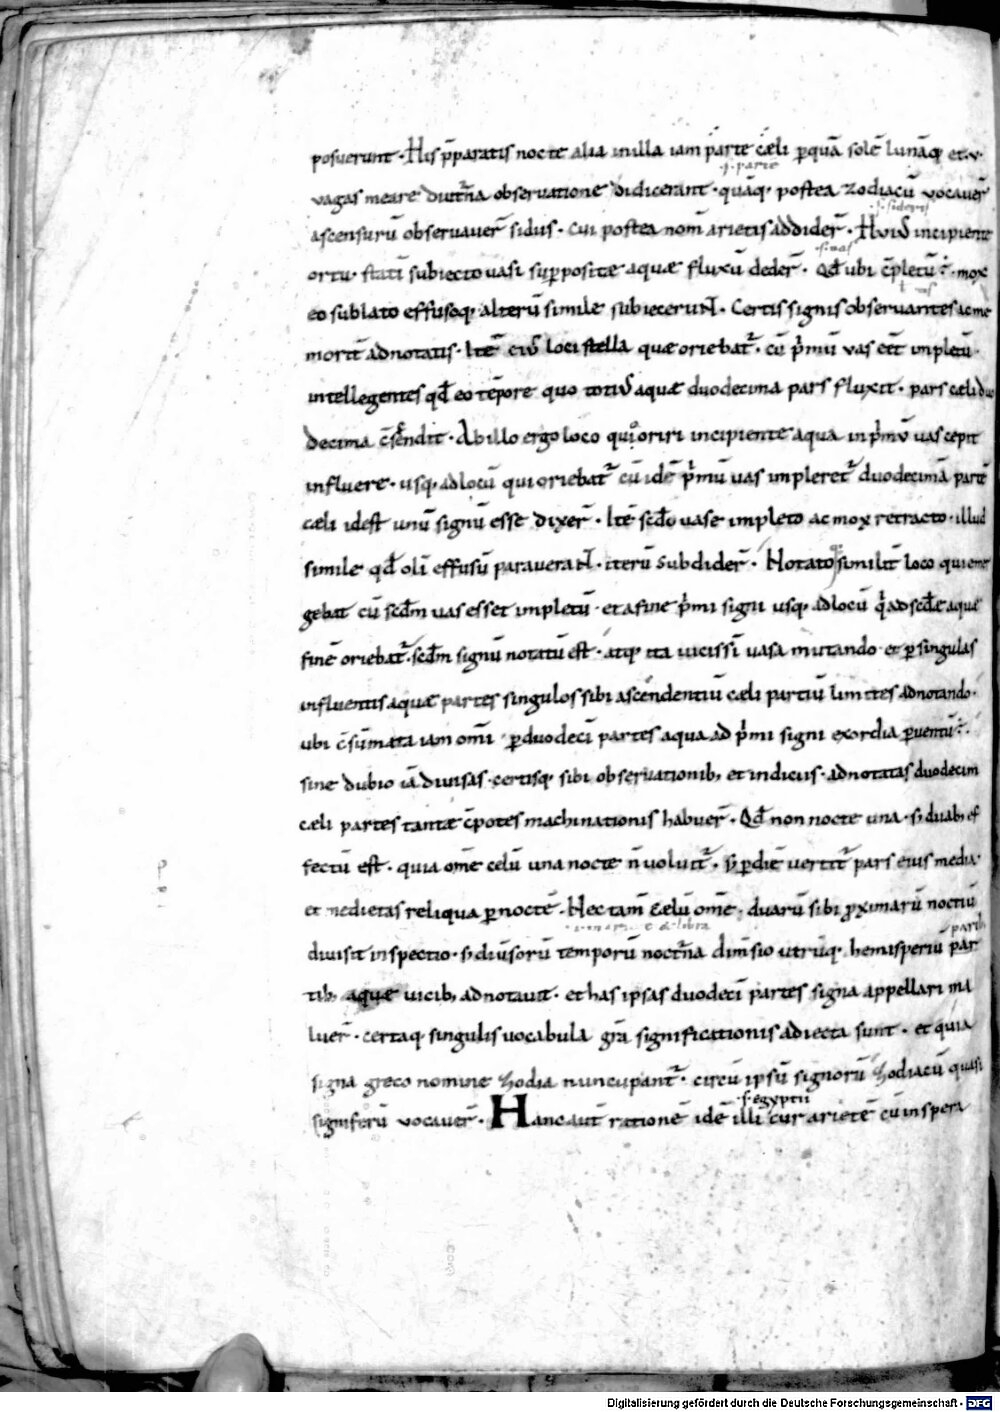 posuerunt · His p̄paratis nocte alia in illa iam parte cæli ꝑquā solē lunāq; et · v ·
.i. parte
vagas meare diut̄na observatione didicerant · quāq; postea zodiacū vocaver̄
.s. sideris
ascensurū observaver̄ sidus · cui postea nom̄ arietis addider̄ · Huiꝰ incipiente
ortu · statī subiecto vasi suꝑpositæ aquæ fluxū deder̄ · Qđ ubi c̄pletū · mox
eo sublato effusoq; alterū simile subiecerunt · Certis signis observantes ac me
morit̄ adnotatis · Itē eiꝰ loci stella quæ oriebat᷑ · cū p̄mū vas eēt impletū ·
intellegentes qđ eo tēpore quo totiꝰ aquæ duodecima pars fluxit · pars cæli duo
decima c̄sendit · Ab illo ergo loco qui oriri incipiente aqua in p̄mū vas cepit
influere · usq; ad locū qui oriebat᷑ cū idē p̄mū vas impleret᷑ duodecimā partē
cæli id est unū signū esse dixer̄ · Itē scđo vase impleto ac mox retracto · illud
simile qđ olī effusū paraverant · iterū subdider̄ · Notato similit̄ loco qui emer
gebat cū scđm vas esset impletū · et a fine p̄mi signi usq; ad locū qͥ ad scđæ aquæ
finē oriebat᷑ · scđm signū notatū est · atq; ita vicissī vasa mutando · et ꝑ singulas
influentis aquæ partes singulos sibi ascendentiū cæli partiū limites adnotando ·
ubi c̄sūmata iam omī ꝑ duodecī partes aqua ad p̄mi signi exordia ꝑventū ·
sine dubio iā divisas · certisq; sibi observationib; et indiciis · adnotatas duodecim
cæli partes tantæ c̄potes machinationis habuer̄ · Qđ non nocte una · s; duab; ef
fectū est · quia om̄e celū una nocte n̄ volvit᷑ · s; ꝑ diē vertit᷑ pars eius media ·
et medietas reliqua ꝑ noctē · Nec tam̄ cælū om̄e · duarū sibi ꝓximarū noctiū
divisit inspectio · s; div̄sorū temporū noct̄na dim̄sio utrūq; hemisperiū par
parib;
tib; aquæ vicib; adnotavit · et has ipsas duodecī partes signa appellari ma
luer̄ · certaq; singulis vocabula gr̄a significationis adiecta sunt · et quia
signa greco nomine zodia nuncupant᷑ · circū ipsū signorū zodiacū quasi
.s. egyptii
signiferū vocaver̄ · Hanc aut̄ rationē idē illi cur arietē cū in spera
Digitalisierung gefördert durch die Deutsche Forschungsgemeinschaft - DFG